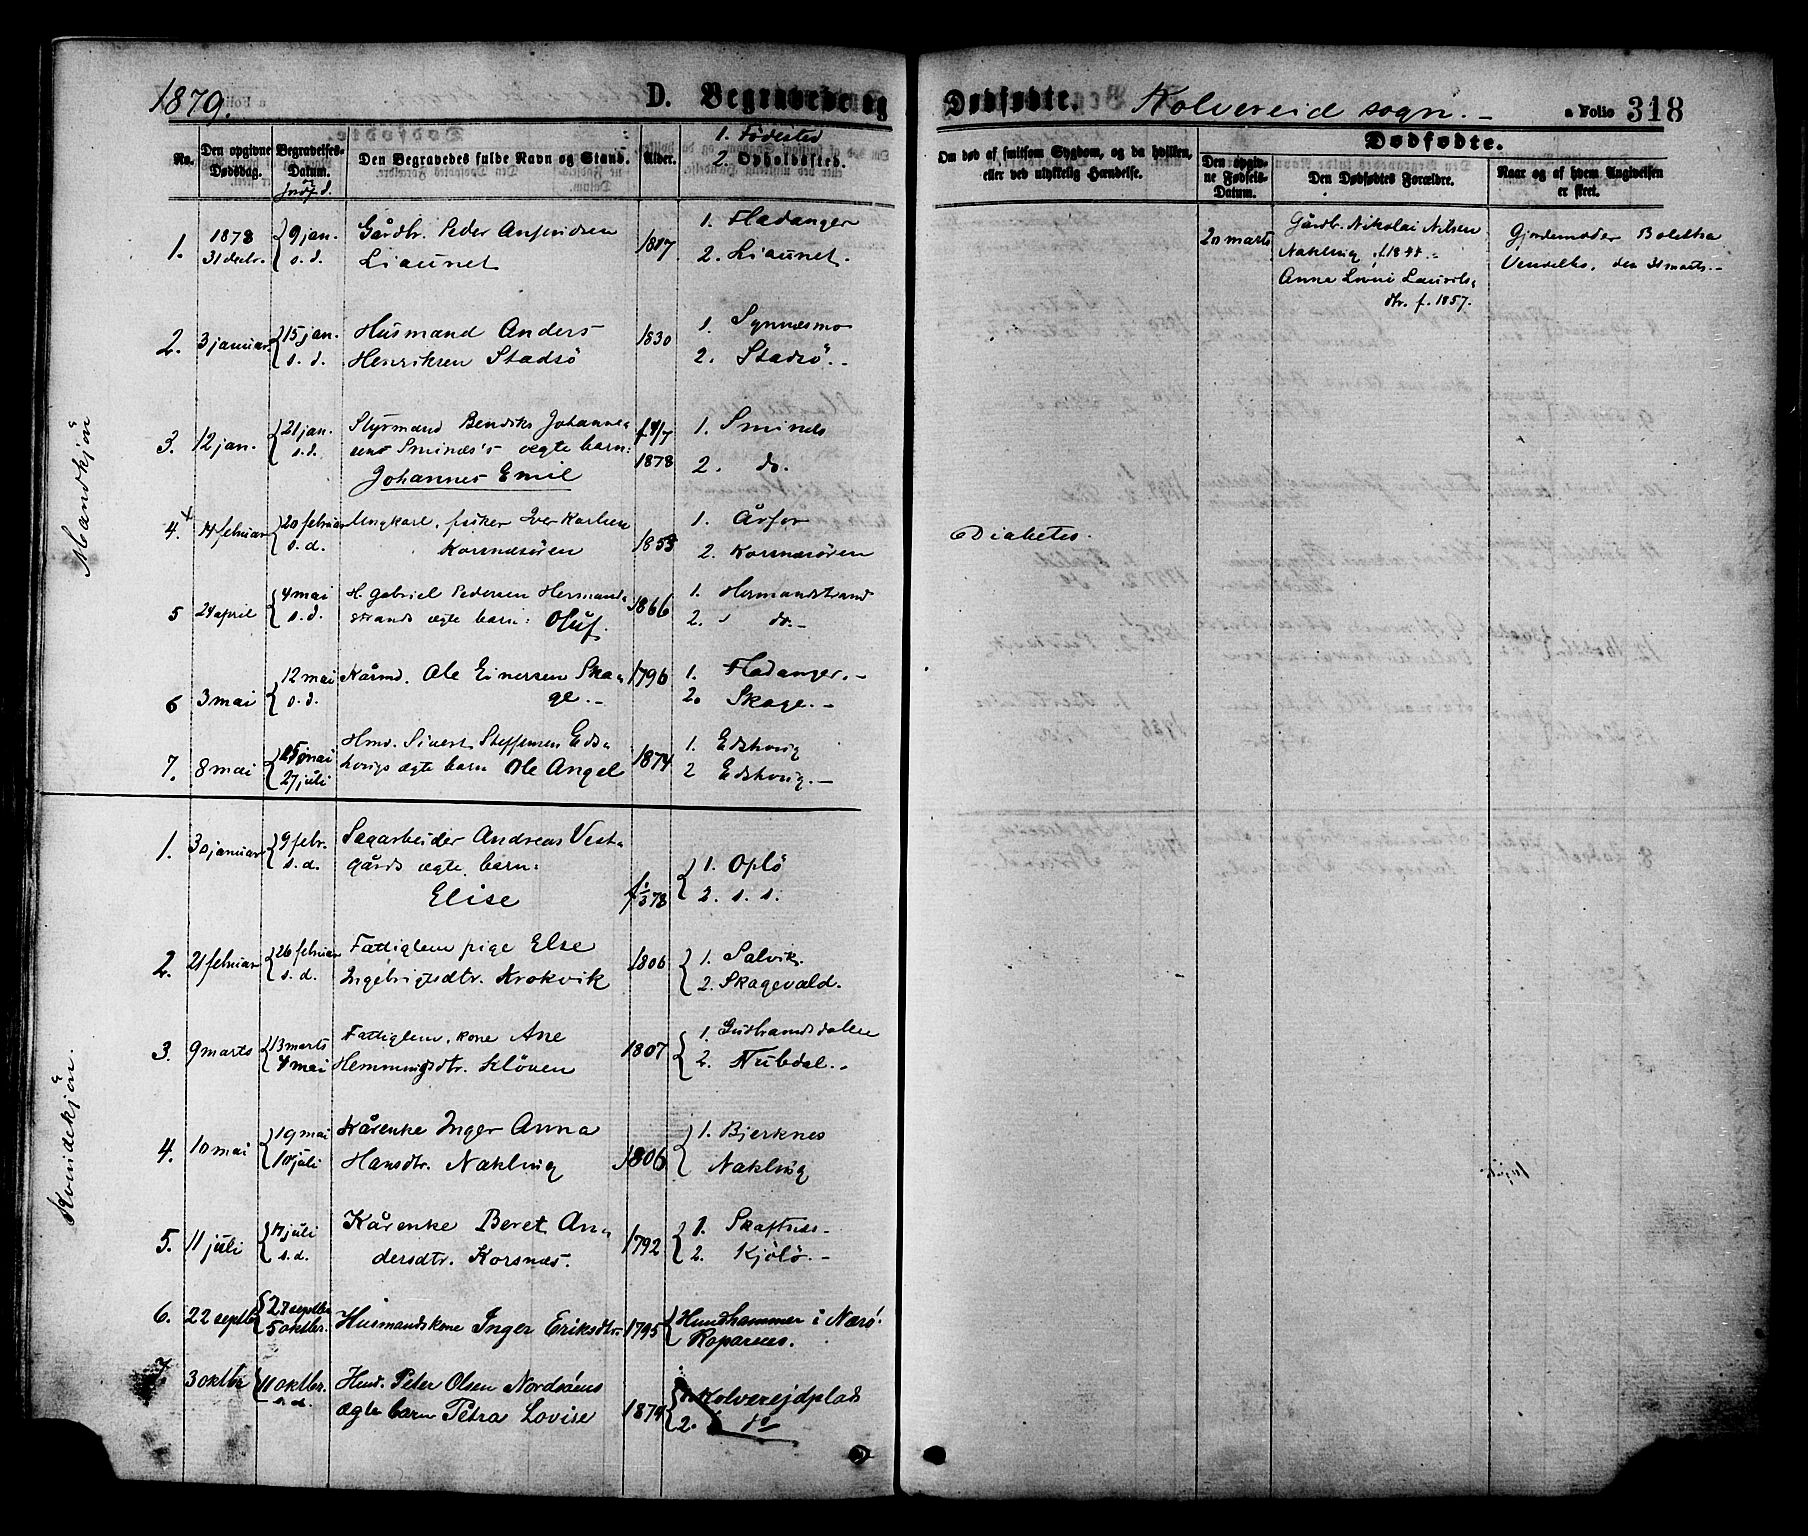 1879.
D. Begravede og Dødfødte.
Kolvereid sogn. -
a Folio 318
No.
Den opgivne Dødsdag.
Begravelses-Datum.
jordf. d.
Den Begravedes fulde Navn og Stand.
Alder.
1. Fødested
2. Opholdssted.
Om død af smitsom Sygdom, og da hvilken, eller ved ulykkelig Hændelse.
Dødfødte.
Den opgivne Fødsels-Datum.
Den Dødfødtes Forældre.
Naar og af hvem Angivelsen er skeet.
Mandkjøn
1. 1878 31 decbr. 9 jan. s. d. Gårdbr. Peder Anfindsen
Liaunet 1807 1. Fladanger
2. Liaunet.
20 marts Gårdb. Nikolai Nilsen
Nakling, f. 1844
Anna Lovise Laurits-
dtr. f. 1857.
Gjordemoder Bolettha
Vendelbo, den 31 marts. -
2. 3 januar 15 jan. s. d. Husmand Anders
Henriksen Stadsö 1830 1. Synnesmo
2. Stadsö. -
3. 12 jan. 21 jan. s. d. Styrmand Bendiks Johanne-
sens Smines's ægte barn:
Johannes Emil 1878 1. Sminds
2. do.
4. 14 februar 20 februar s. d. Ungkarl, fisker Iver Karlsen
Korsnesören 1853 1. Årfor
2. Korsnesören
Diabetes.
5 24 april 4 mai s. d. H. Gabriel Pedersen Hermand-
strands ægte barn: Oluf. 1866 1. Hermandstrand
2. do. -
6 3 mai 12 mai s. d. Kårmd. Ole Einersen Ska-
ge. - 1796 1. Fladanger. -
2. Skage. -
7. 8 mai 15 mai 27 juli Hmd. Sivert Steffensen Eds-
hougs ægte barn Ole Angel 1874 1. Edshoug
2 Edshoug. -
Kvindekjøn.
1. 30 januar 9 febr. s. d. Sagarbeider Andreas Vest-
gårds ægte barn:
Elise f. 1/3 78 1. Oplö
2. s. s.
2. 21 februar 26 februar s. d. Fattiglem pige Else
Ingebrigtsdtr. Krokvik 1806 1. Salvik.
2. Skagevald.
3. 9 marts 13 marts 4 mai Fattiglem, kone Ane
Hemmingsdtr. Klöven 1807 1. Gudbrandsdalen
2. Nubdal. -
4. 10 mai 19 mai 10 juli Kårenke Inger Anna
Hansdtr. Nakling 1806 1. Bjerknes
Nakling
5. 11 juli 17 juli s. d. Kårenke Beret An-
dersdtr. Korsnæs. 1792 1. Skaftnes -
2. Kjölö. -
6. 22 septbr 28 septbr 5 oktbr. Husmandskone Inger Eriksdtr. 1795 Hundhammer i Nærö.
Raparnes.
7 3 oktbr 11 oktbr. s. d. Hmd. Peter Olsen Nordsöens
ægte barn Petra Lovise 1874 1. Kolvereidplads
2. do